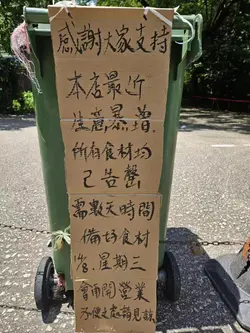 感謝大家支持
本店最近
生意暴增
所有食材均
已告罄
需數天時間
備好食材
1/8. 星期三
會再開營業
不便之處請見諒